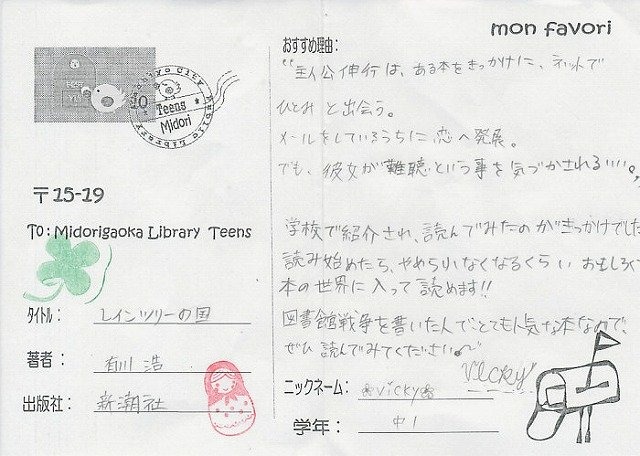 mon favori
おすすめ理由:
"主人公伸行は、ある本をきっかけに、ネットで
ひとみと出会う。
メールをしているうちに恋へ発展。
でも、彼女が難聴という事を気づかされる…。"
学校で紹介され、読んでみたのがきっかけでした
読み始めたら、やめられなくなるくらいおもしろくて
本の世界に入って読めます!!
図書館戦争を書いた人でとても人気な本なので、
ぜひ読んでみてください。
Vicky
ニックネーム: vicky
学年: 中1
10
Teens
Midori
〒15-19
TO: Midorigaoka Library Teens
タイトル: レインツリーの国
著者: 有川 浩
出版社: 新潮社